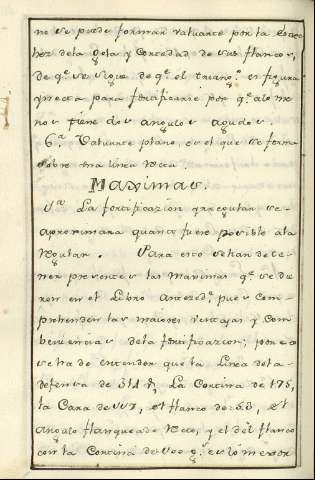 no se puede formar valuarte por la estrechez dela gola y Cortedad de sus flancos,
de q.e se sigue de q.e el triang.o es figura
ynecta para fortificarse por q.e alo me
nos tiene dos angulos agudos.
6.a Valuarte plano, es el que se forma
sobre una linea Recta.
Maximas.
1.a La fortificazion yrregular se
aproximara quanto fuere posible ala
Regular. Para esto se han de te
ner presentes las Maximas q.e se die
ron en el Libro Anteced.e pues com
prehenden las maiores ventajas y Com
beniencias dela fortificazion; por eso
se ha de entender que la Linea dela
defensa de 314 la Cortina de 175,
la Cara de el flanco de 53, el
Angulo flanqueado Recto, y el del flanco
con la Cortina de q.e es lo mesmo